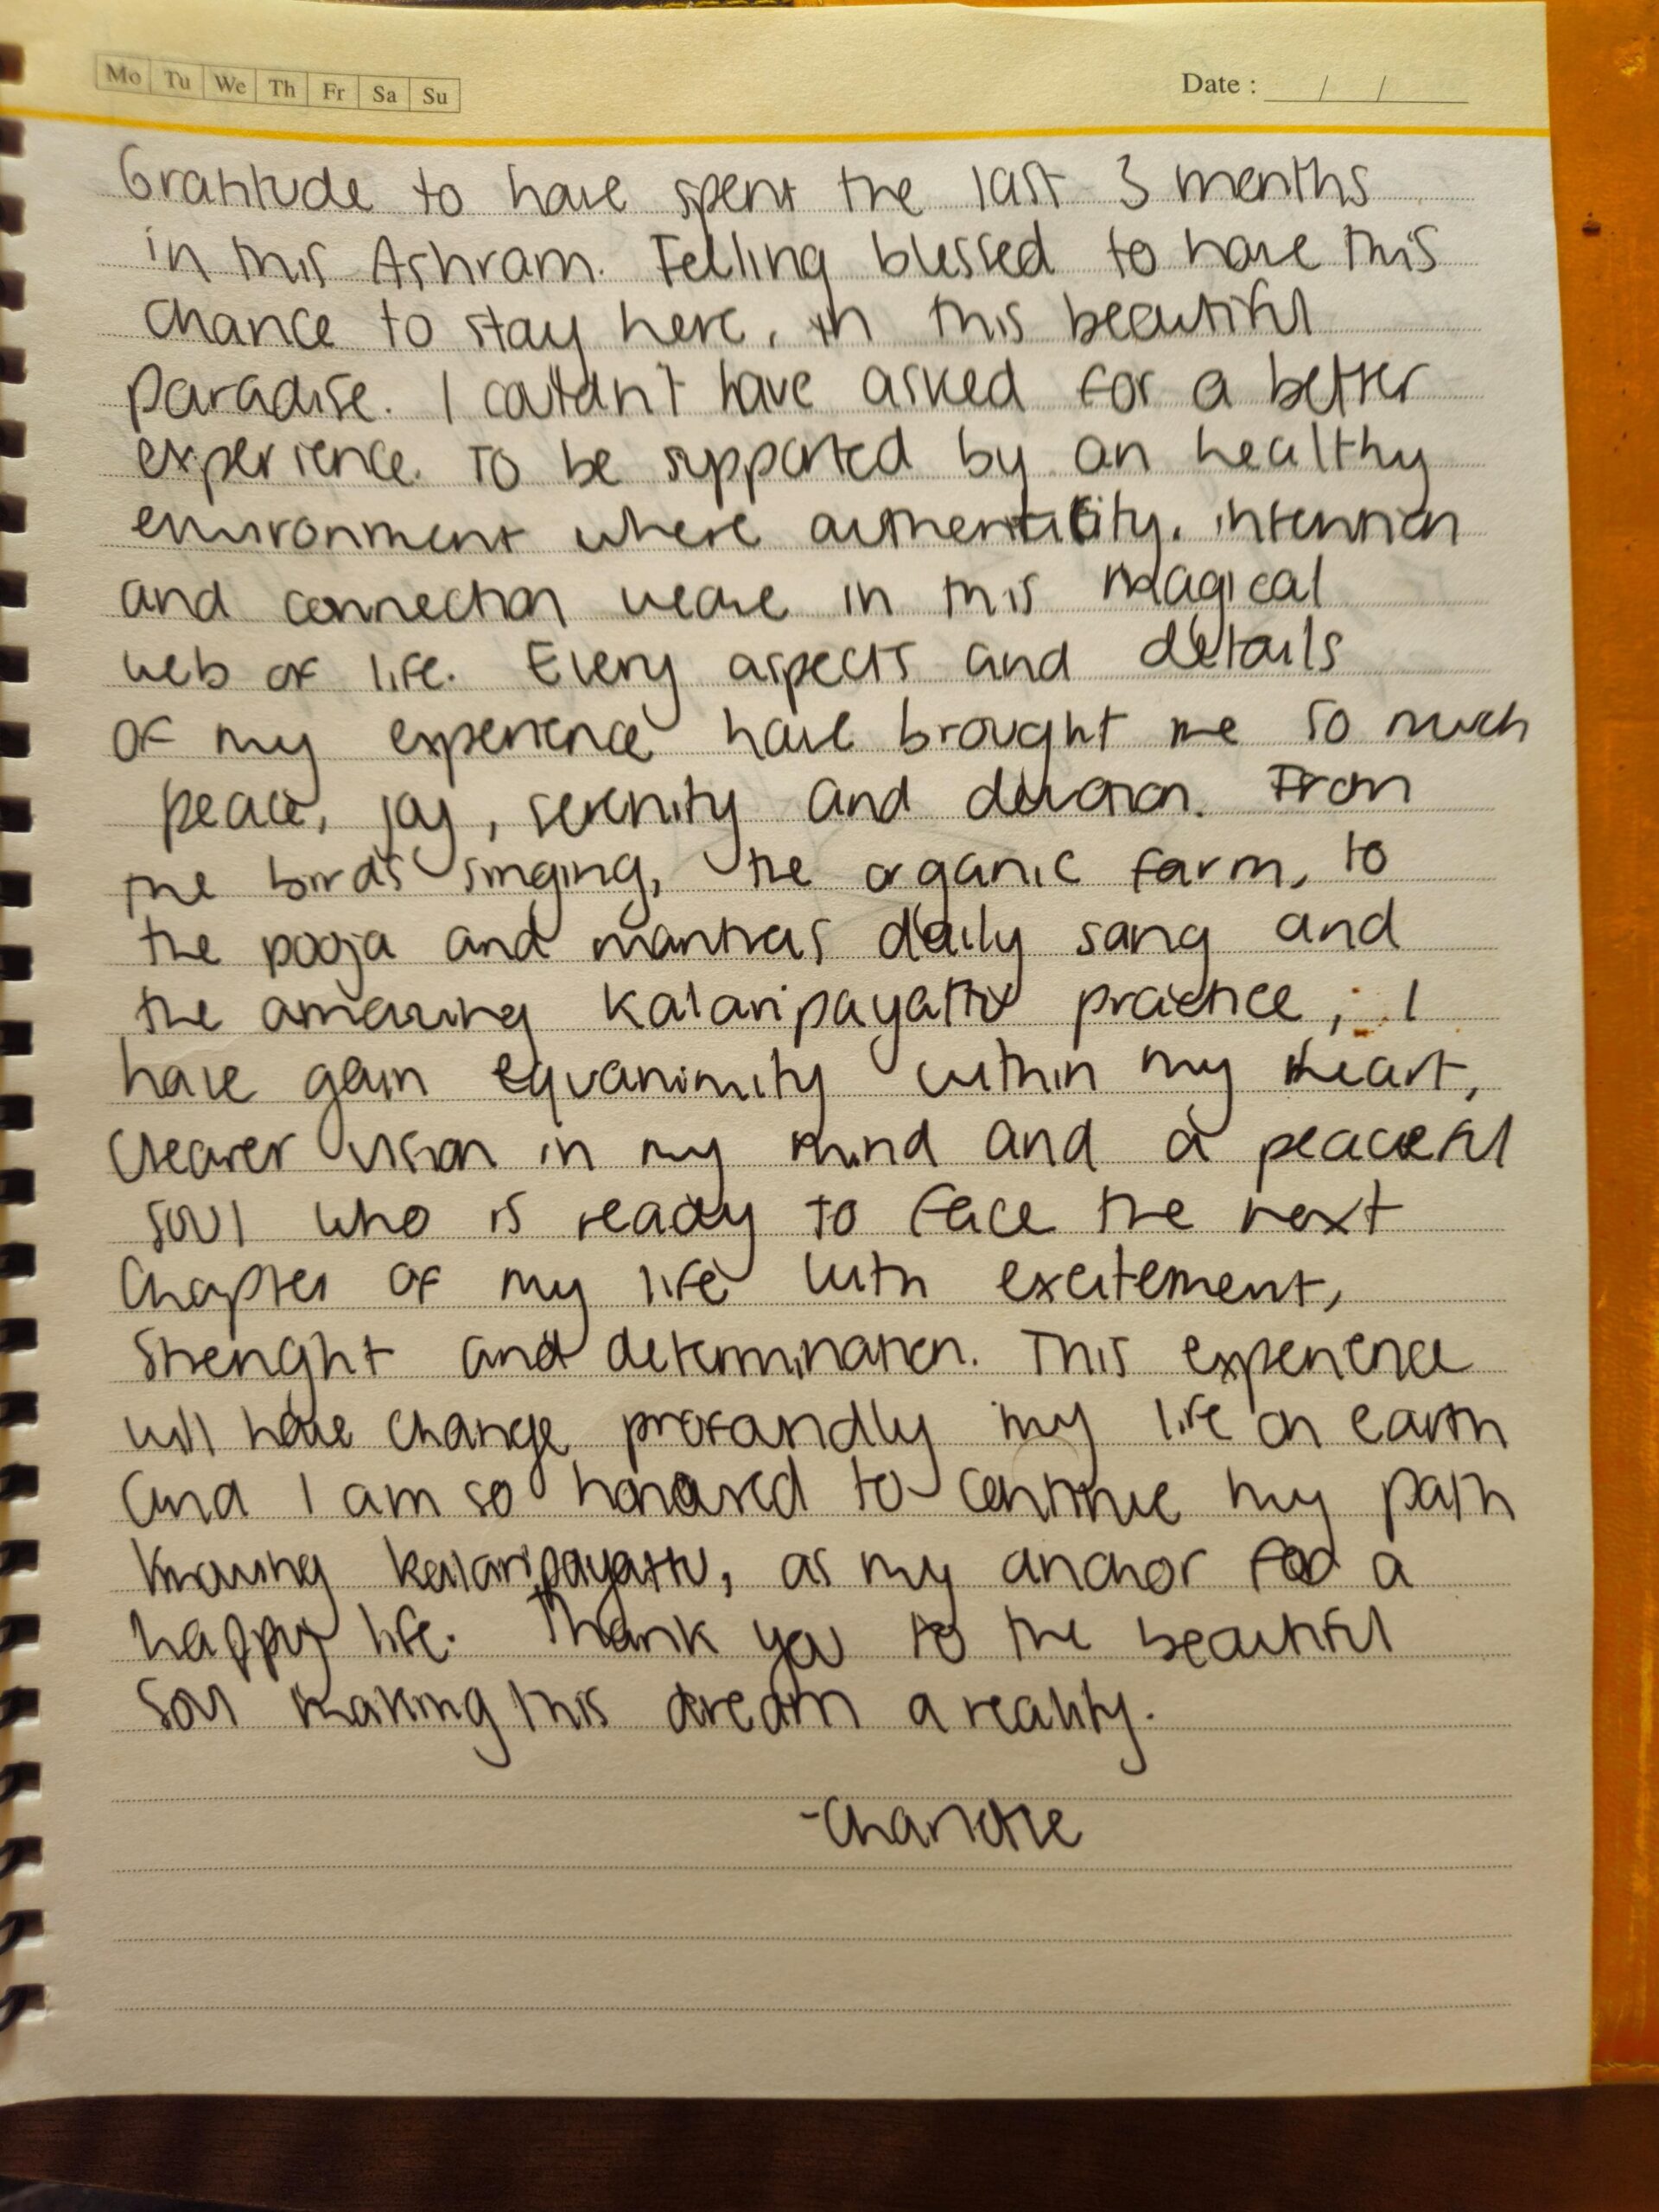 Mo Tu We Th Fr Sa Su
Date : / /
Gratitude to have spent the last 3 months
in this Ashram. Felling blessed to have this
chance to stay here, in this beautiful
paradise. I couldn't have asked for a better
experience. To be supported by an healthy
environment where authenticity, intention
and connection weave in this magical
web of life. Every aspects and details
of my experience have brought me so much
peace, joy, serenity and devotion. From
the birds singing, the organic farm, to
the pooja and mantras daily sang and
the amazing kalaripayattu practice, I
have gain equanimity within my heart,
clearer vision in my mind and a peaceful
soul who is ready to face the next
chapter of my life with excitement,
strenght and determination. This experience
will have change profoundly my life on earth
and I am so honored to continue my path
knowing kalaripayattu, as my anchor for a
happy life. Thank you to the beautiful
soul making this dream a reality.
-Charlotte